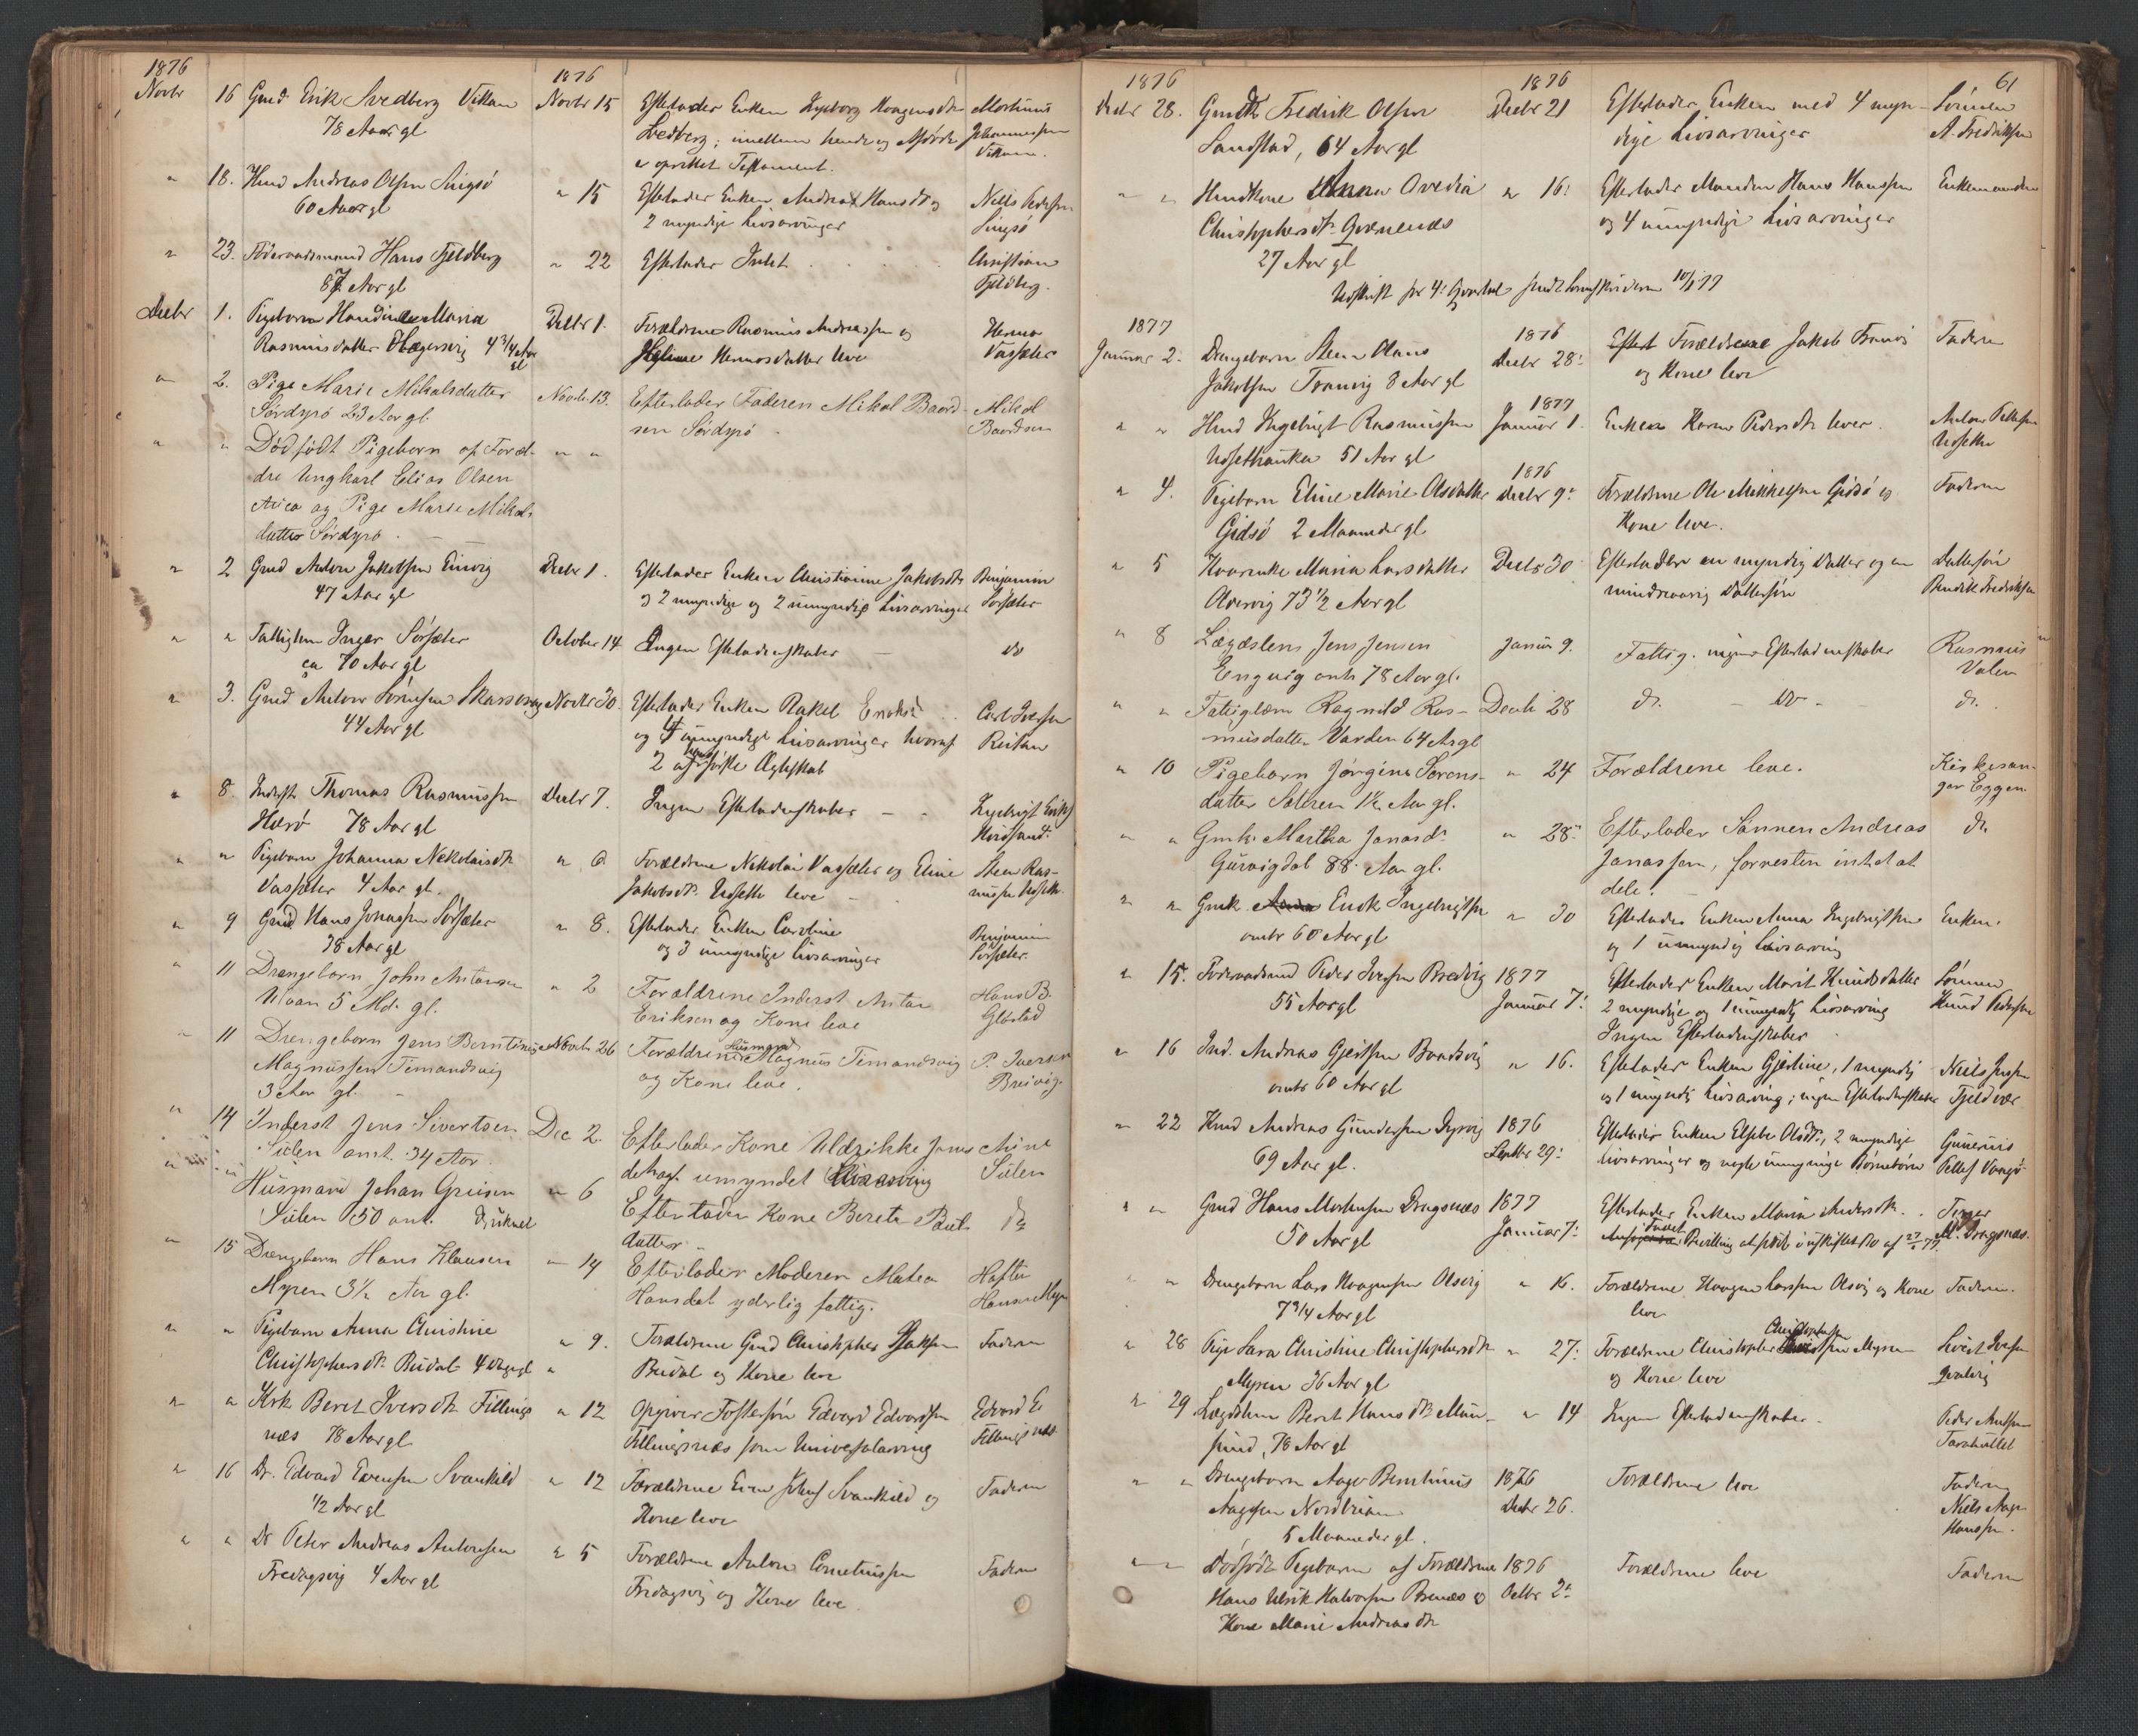 1876 1876
Novbr 16 Gmd Erik Svedberg Vikan Novbr 15 Efterlader Enken Ingeborg Haagensdtr Martinus
78 Aar gl Svedberg; imellem hende og Afdøde Johannessen
er oprettet Testament. Vikan.
" 18. Hmd Andreas Olsen Singsø " 15 Efterlader Enken Andrea Hansdtr og Niels Pedersen
60 Aar gl 2 myndige Livsarvinger Singsø
" 23. Føderaadsmand Hans Fjeldberg " 22 Efterlader Intet Christian
87 Aar gl Fjeldberg.
Decbr 1. Pigebarn Handine Maria Decbr 1. Forældrene Rasmus Andreassen og Herman
Rasmusdatter Hagensvig 4 3/4 Aar gl Hermosdatter leve Vassæter
" 2. Pige Marie Mikalsdatter Novbr 13. Efterlader Faderen Mikal Baard- Mikal
Sørdyrø 23 Aar gl. sen Sørdyrø. Baardsen
" " Dødfødt Pigebarn af Foræl- " "
dre Ungkarl Elias Olsen
og Pige Marie Mikals
datter Sørdyrø.
" 2 Gmd Anton Jakobsen Einvig Decbr 1. Efterlader Enken Christianne Jakobsdtr Benjamin
47 Aar gl og 2 myndige og 2 umyndige Livsarvinger Sørsæter
" " Fattiglem Inger Sørsæter October 14 Ingen Efterladenskaber do
ca 70 Aar gl
" 3. Gmd Anton Sørensen Novbr 30. Efterlader Enken Rakel Carl Iversen
44 Aar gl og 4 umyndige Livsarvinger hvoraf Reitan
2 af hans første Ægteskab
" 8. Inderst Thomas Rasmussen Decbr 7. Ingen Efterladenskaber Ingebrigt Eriks
78 Aar gl
" " Pigebarn Johanna Nekolaisdtr " 6 Forældrene Nekolai Vassæter og Eline Steen Ras-
Vassæter 4 Aar gl. Jakobsdtr leve mussen
" 9 Gmd Hans Jonassen Sørsæter " 8. Efterlader Enken Caroline Benjamin
38 Aar gl og 3 umyndige Livsarvinger Sørsæter.
" 11 Drengebarn John Antonsen " 2 Forældrene Inderst Anton Hans B.
5 Md. gl. Eriksen og Kone leve Glørstad
" 11 Drengebarn Jens Berntinus Novbr 26 Forældrene Husmand Magnus Timandsvig P. Iversen
Magnussen Timandsvig og Kone leve. Breivig.
3 Aar gl.
" 14 Inderst Jens Sivertsen Dec 2. Efterlader Kone Jens
Sulen omt. 34 Aar. umyndet Livsarving Sulen
" " Husmand Johan Greisen " 6 Efterlader Kone Berete Paul- do
Sulen 50 omt. druknet datter
" 15 Drengebarn Hans Klausen " 14 Efterlader Moderen Matea Hafter
Myren 3½ Aar gl. Hansdat yderlig fattig. Hansen Myr
" " Pigebarn Anna Christine " 9. Forældrene Gmd Christopher Faderen
Christophersdtr Budal 4 Dage gl Budal og Kone leve
" " Krk Beret Iversdtr Fillings " 12 Opgiver Fostersøn Edvard Edvardsen Edvard E
næs 78 Aar gl Fillingsnæs som Universalarving Fillingsnæs
" 16 Dr. Edvard Evensen Svankild " 12 Forældrene Even Svankild og Faderen
1/2 Aar gl Kone leve
" " Dr Peter Andreas Antonsen " 5 Forældrene Anton Corneliussen Faderen
Fredagsvig 4 Aar gl Fredagsvig og Kone leve.
61
1876 1876
Decbr 28. Gmd Fredrik Olsen Decbr 21 Efterlader Enken med 4 myn- Sønnen
Sandstad, 64 Aar gl dige Livsarvinger A. Fredriksen
" " Hmdkone Anna Ovedia " 16. Efterlader Manden Hans Hanssen Enkemanden
Christophersdtr Grønnæs og 4 umyndige Livsarvinger
27 Aar gl
Udskrift for 4. Qvartal sendt Sorenskriveren 10/1 77
1877 1876
Januar 2. Drengebarn Steen Olaus Decbr 28. Forældrene Jakob Tranvig Faderen
Jakobsen Tranvig 8 Aar gl og Kone leve
1877
" " Hmd Ingebrigt Rasmussen Januar 1. Enken Karen Pedersdtr lever. Anton
51 Aar gl
1876
" 4. Pigebarn Eline Marie Olsdatter Decbr 9. Forældrene Ole Mikkelsen Gidsø og Faderen
Gidsø 2 Maaneder gl Kone leve.
" 5 Maria Larsdatter Decbr 30 Efterlader en myndig Datter og en Dattersøn
73 1/2 Aar gl mindreaarig Dattersøn Bendik Fredriksen
" 8 Lægdslem Jens Jensen Januar 9. Fattig. ingen Efterladenskaber Rasmus
Engvig omtr 78 Aar gl. Valen
" " Fattiglem Ragnild Ras- Decbr 28 do. - do - do.
musdatter Varden 64 Aar gl
" 10 Pigebarn Jørgine Sørens- " 24 Forældrene leve. Kirkesan-
datter Sæteren 1½ Aar gl. ger Eggen.
" " Gmk. Martha Jonasdr " 28. Efterlader Sønnen Andreas do
Gurvigdal 88 Aar gl. Jonassen, forresten intet at
dele.
" " Gmk Enok Ingebrigtsen " 30 Efterlader Enken Anna Ingebrigtsen Enken.
omtr 60 Aar gl og 1 umyndig Livsarving
" 15. Føderaadsmd Peder Iversen Bredvig 1877 Efterlader Enken Marit Knudsdatter Sønnen
55 Aar gl Januar 7. 2 myndige og 1 umyndig Livsarving Knud Pedersen
Ingen Efterladenskaber
" 16 Ind. Andreas Gjertsen " 16. Efterlader Enken Gjertine, 1 myndig Niels Jensen
omtr 60 Aar gl og 1 umyndig Livsarving; ingen Efterladenskaber Fjeldvær
" 22 Kmd Andreas Gundersen Dyrvig 1876 Efterlader Enken Elsebe Olsdtr., 2 myndige Gunerius
69 Aar gl. Septbr 29. Livsarvinger og nogle umyndige Børnebørn
" " Gmd Hans Mortensen Dragsnæs 1877 Efterlader Enken Maria Andersdtr.
50 Aar gl Januar 7. Bevilling at sidde i uskiftet Bo af 27/1 77 Dragsnæs.
" " Drengebarn Lars Haagensen Olsvig " 16. Forældrene Haagen Larssen Olsvig og Kone Faderen.
7 3/4 Aar gl leve
" 28 Pige Sara Christine Christophersdtr " 27. Forældrene Christopher Christophersen Myren Sivert Iversen
Myren 36 Aar gl og Kone leve
" 29 Lægdslem Beret Hansdtr Mun- " 14 Ingen Efterladenskaber. Peder
sund, 78 Aar gl
" " Drengebarn Aage Berntinus 1876 Forældrene leve Faderen
Aagesen Decbr 26. Niels Aage
5 Maaneder gl. Hanssen.
" " Dødfødt Pigebarn af Forældrene 1876 Forældrene leve Faderen
Hans Ulrik Halvorsen og Octbr 2.
Kone Marie Andreasdtr